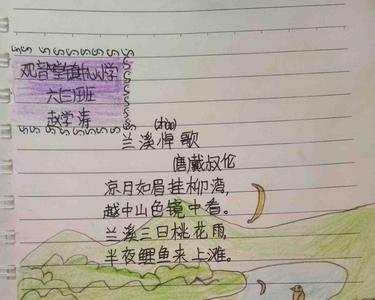 观音堂镇中心小学
六(三)班
赵学涛
(zhào)
兰溪棹歌
唐戴叔伦
凉月如眉挂柳湾,
越中山色镜中看。
兰溪三日桃花雨,
半夜鲤鱼来上滩。